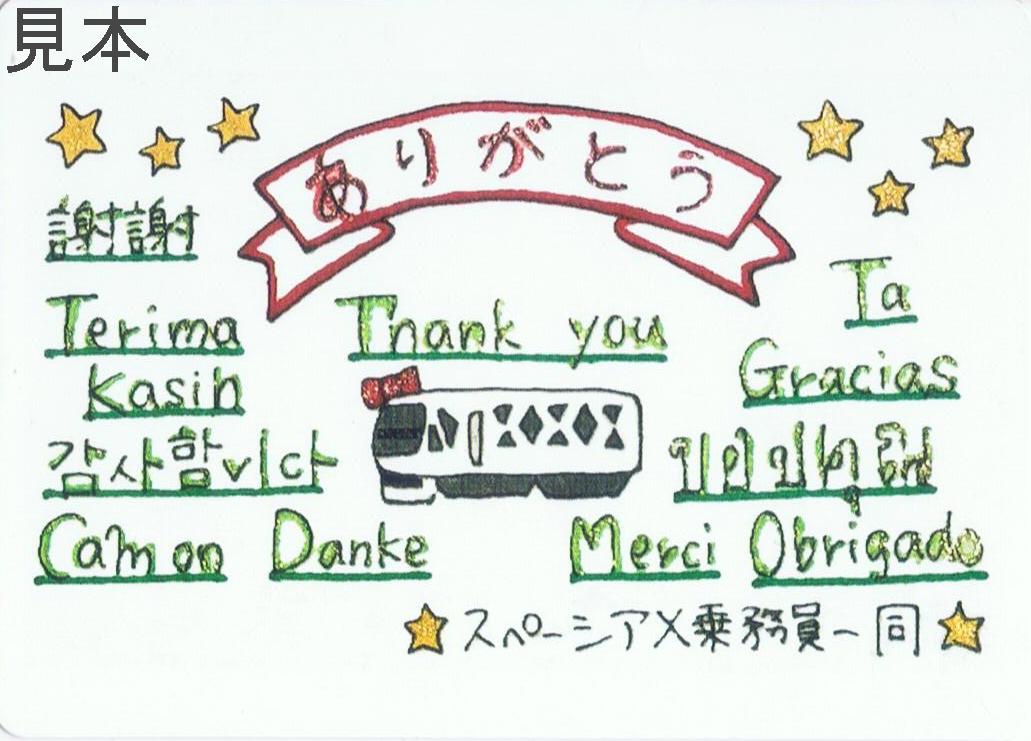 見本
ありがとう
謝謝
Terima
Kasih
Thank you
Ta
Gracias
감사함니다
Cam on
Danke
Merci
Obrigado
スペーシアX乗務員一同